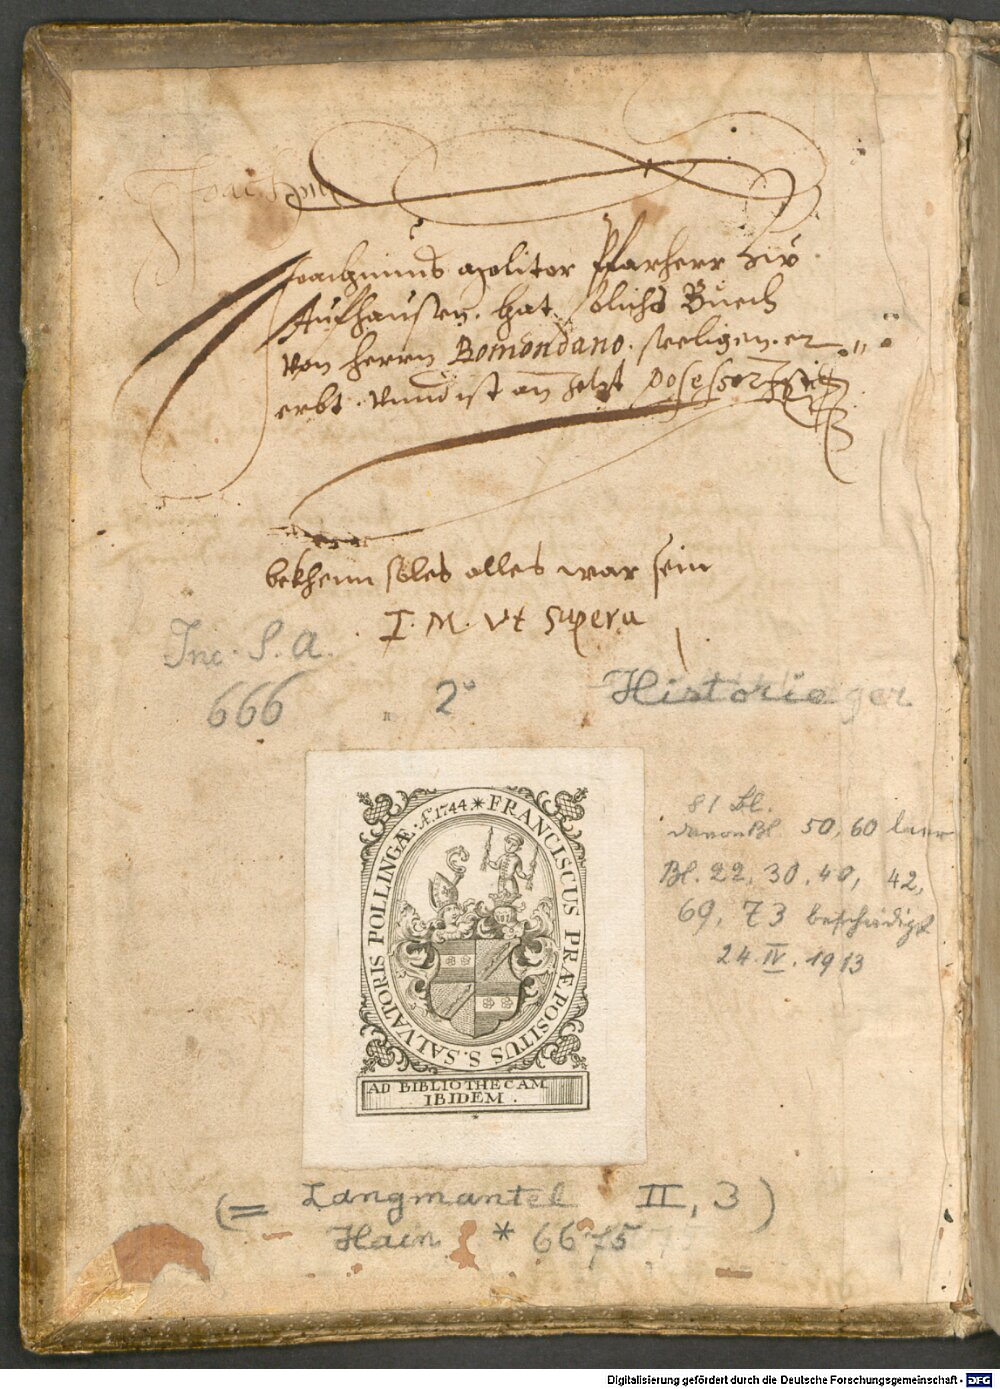 Joachim
Joachimus Molitor Pfarherr Zuͦ
Aufhausen. hat solichs Buech
von herrn Bomondano. seeligen. er
erbt. Vnnd ist an jetzt posessor
bekhenn soles alles war sein
I. M. Vt supera
Inc. S. a.
666
2°
Historie ger
81 Bl.
davon Bl. 50, 60 leer
Bl. 22, 30, 40, 42,
69, 73 beschädigt
24. IV. 1913
FRANCISCUS PRÆPOSITUS S. SALVATORIS POLLINGÆ. Æ. 1744 *
AD BIBLIOTHECAM
IBIDEM.
(= Langmantel II, 3)
Hain * 6675
Digitalisierung gefördert durch die Deutsche Forschungsgemeinschaft - DFG